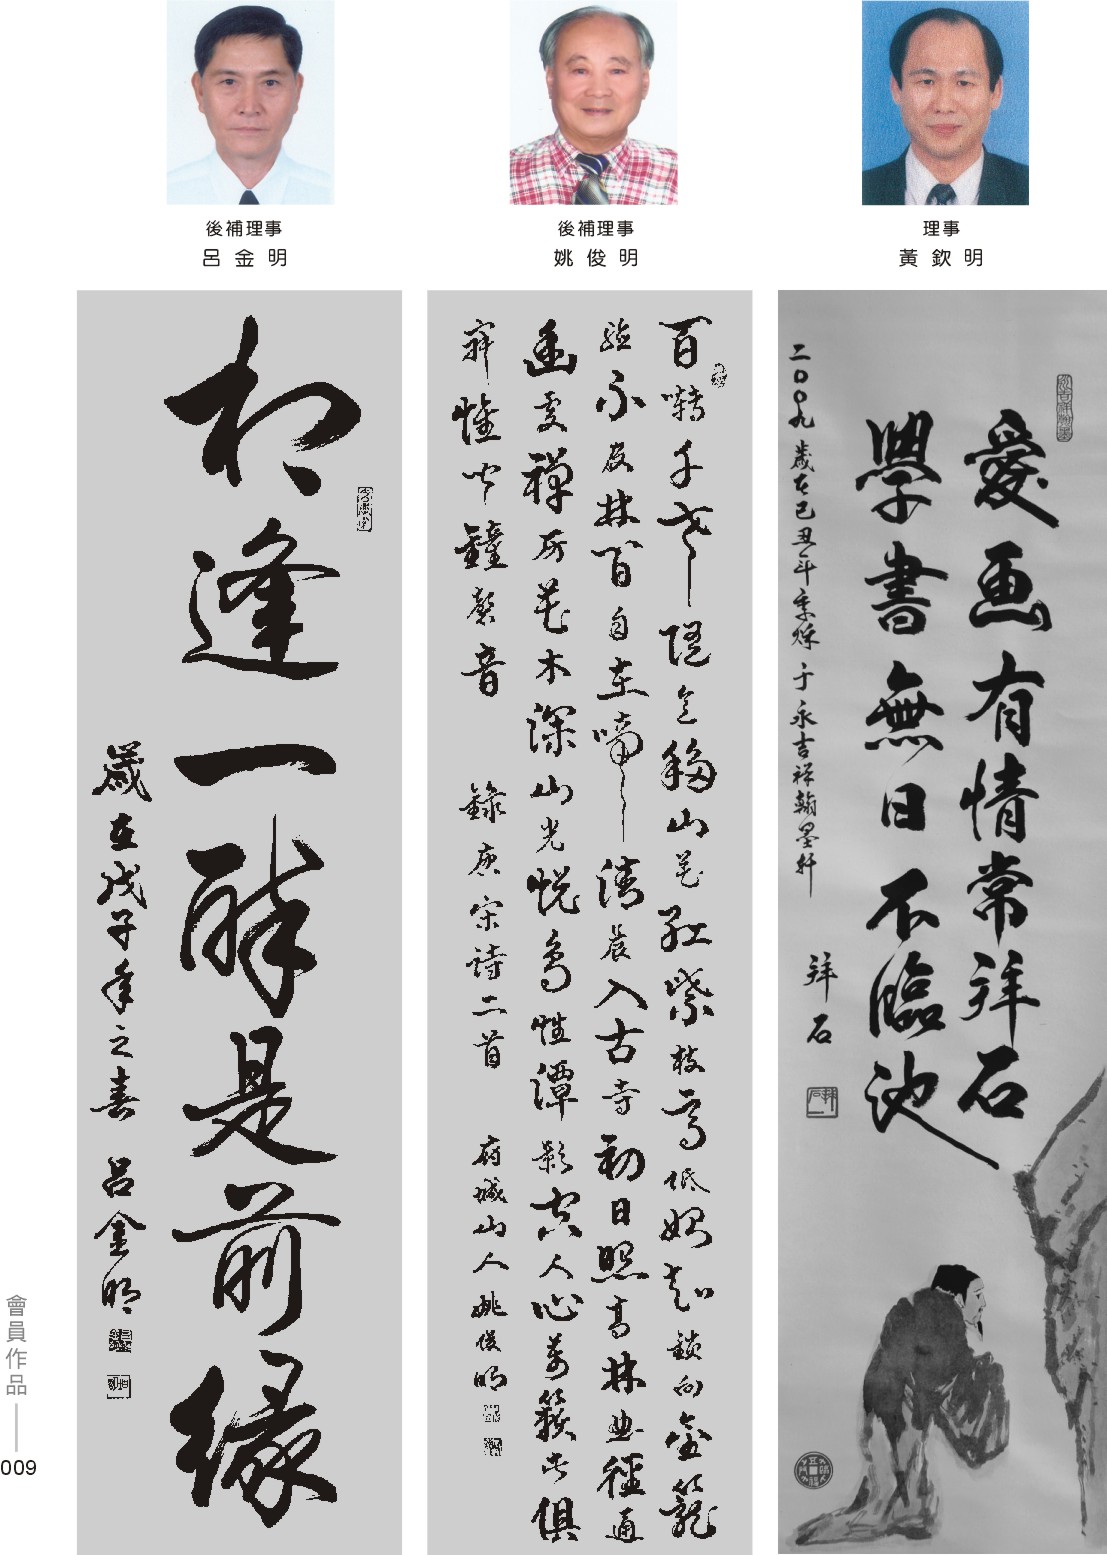 後補理事
呂金明
後補理事
姚俊明
理事
黃欽明
愛画有情常拜石
學書無日不臨池
二〇〇九歲在己丑年季秌于永吉祥翰墨軒 拜石
百囀千聲隨意移山花紅紫樹高低始知鎖向金籠
聽不及林間自在啼清晨入古寺初日照高林曲徑通
幽處禪房花木深山光悅鳥性潭影空人心萬籟此俱
寂惟聞鐘磬音 錄唐宋詩二首 府城山人姚俊明
相逢一醉是前緣
歲在戊子年之春 呂金明
會員作品
009